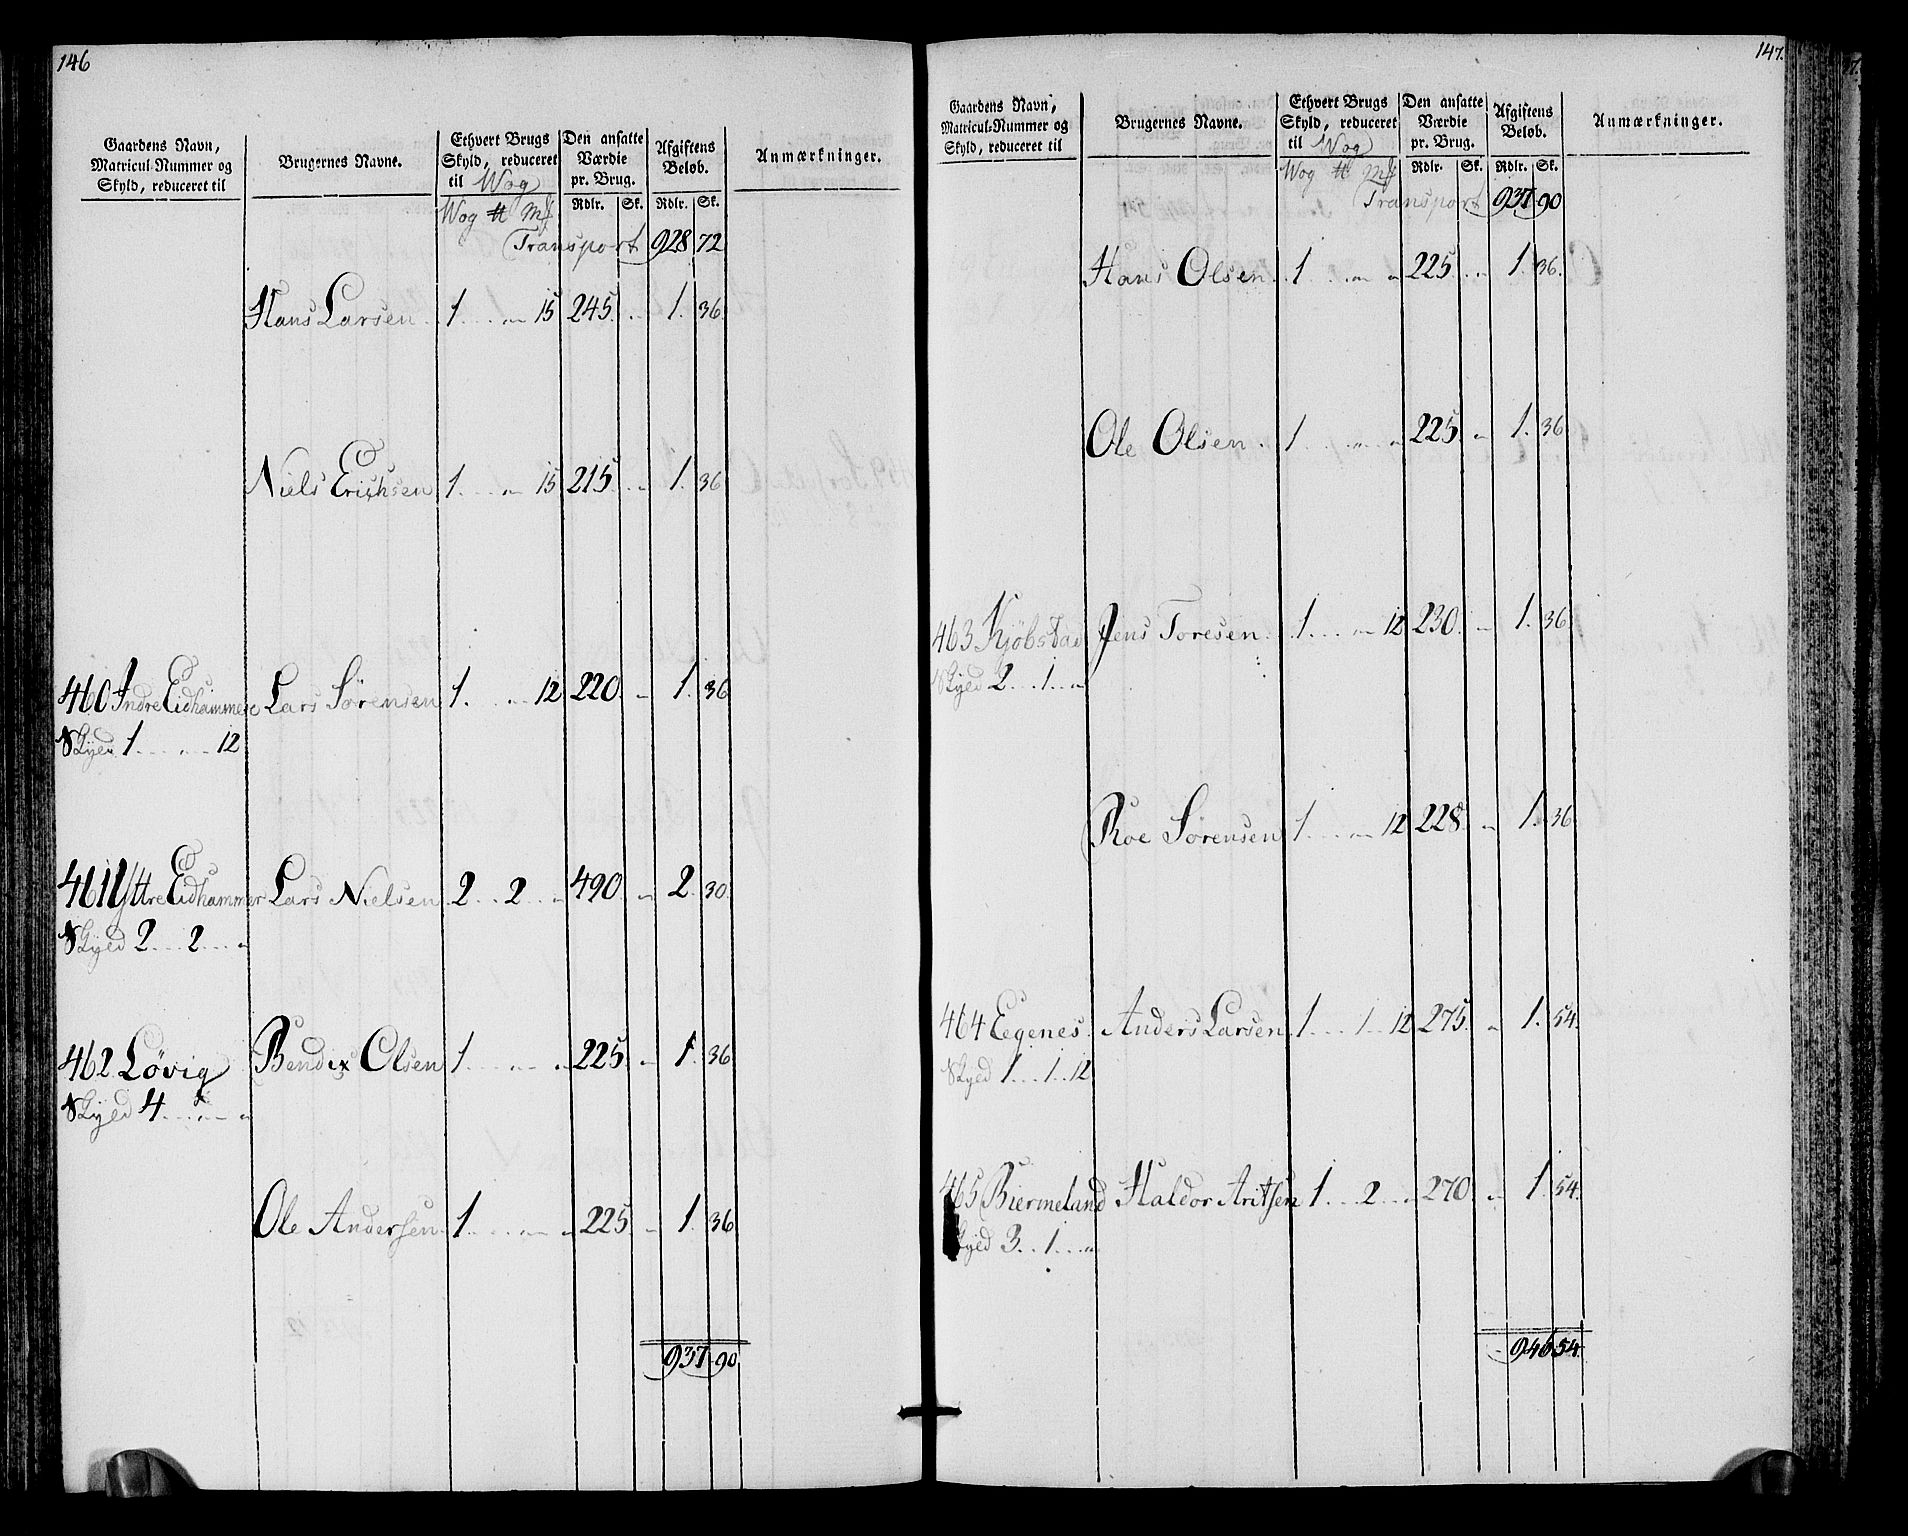 146
Gaardens Navn,
Matricul-Nummer og
Skyld, reduceret til
Brugernes Navne.
Ethvert Brugs
Skyld, reduceret
til Wog
Den ansatte
Værdie
pr. Brug.
Afgiftens
Beløb.
Anmærkninger.
Wog ℔ Mk
Rdlr. Sk. Rdlr. Sk.
Transport 928 72
Hans Larsen 1 . . . „ 15 245 . . 1. 36.
Niels Erichsen 1 . . . „ 15 215 . . 1. 36
460 Indre Eidhammer Lars Sörensen 1. . . . 12 220. „ 1. 36
Skyld 1 . . . „ . . 12
461 Yttre Eidhammer Lars Nielsen 2 . . 2 . . „ 490. „ 2. 30.
Skyld 2 . . . 2 . . . „
462 Lövig Bendix Olsen 1 . . . „ . . „ 225. „ 1. 36
Skyld 4 . . . „ . . „
Ole Andersen 1 . . . . . „ 225. „ 1. 36
937 90
147.
Gaardens Navn,
Matricul-Nummer og
Skyld, reduceret til
Brugernes Navne.
Ethvert Brugs
Skyld, reduceret
til Wog
Den ansatte
Værdie
pr. Brug.
Afgiftens
Beløb.
Anmærkninger.
Wog ℔ Mk
Rdlr. Sk. Rdlr. Sk.
Transport 937 90
Hans Olsen 1 . . . „ . „ 225. . „ 1. 36.
Ole Olsen 1 . . . „ . . „ 225. „ 1. 36
463 Kjöbstad Jens Toresen 1 . . . „ 12 230. „ 1. 36.
Skyld 2 . . . 1 . . „
Roe Sörensen 1 . . . „ 12 228. „ 1. 36
464 Eegenes Anders Larsen 1 . . . 1 . . 12 275. „ 1. 54.
Skyld 1 . . . 1 . . 12
465 Biermeland Haldor Aritsen 1 . . . 2 . . „ 270. „ 1. 54.
Skyld 3 . . 1 . . . „
946 54